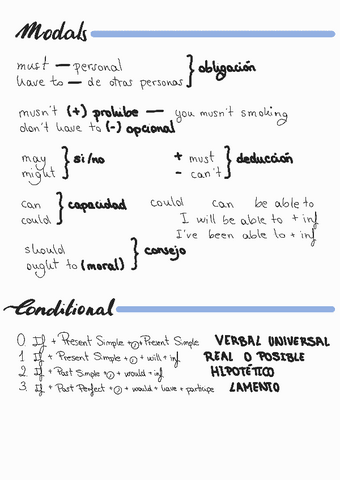 Modals
must — personal
have to — de otras personas } obligación
musn't (+) prohibe — you musn't smoking
don't have to (-) opcional
may
might } si/no
+ must
- can't } deducción
can
could } capacidad
could can be able to
I will be able to + inf
I've been able to + inf
should
ought to (moral) } consejo
Conditional
0 If + Present Simple + , + Present Simple VERBAL UNIVERSAL
1 If + Present Simple + , + will + inf REAL O POSIBLE
2 If + Past Simple + , + would + inf HIPOTÉTICO
3 If + Past Perfect + , + would + have + participe LAMENTO